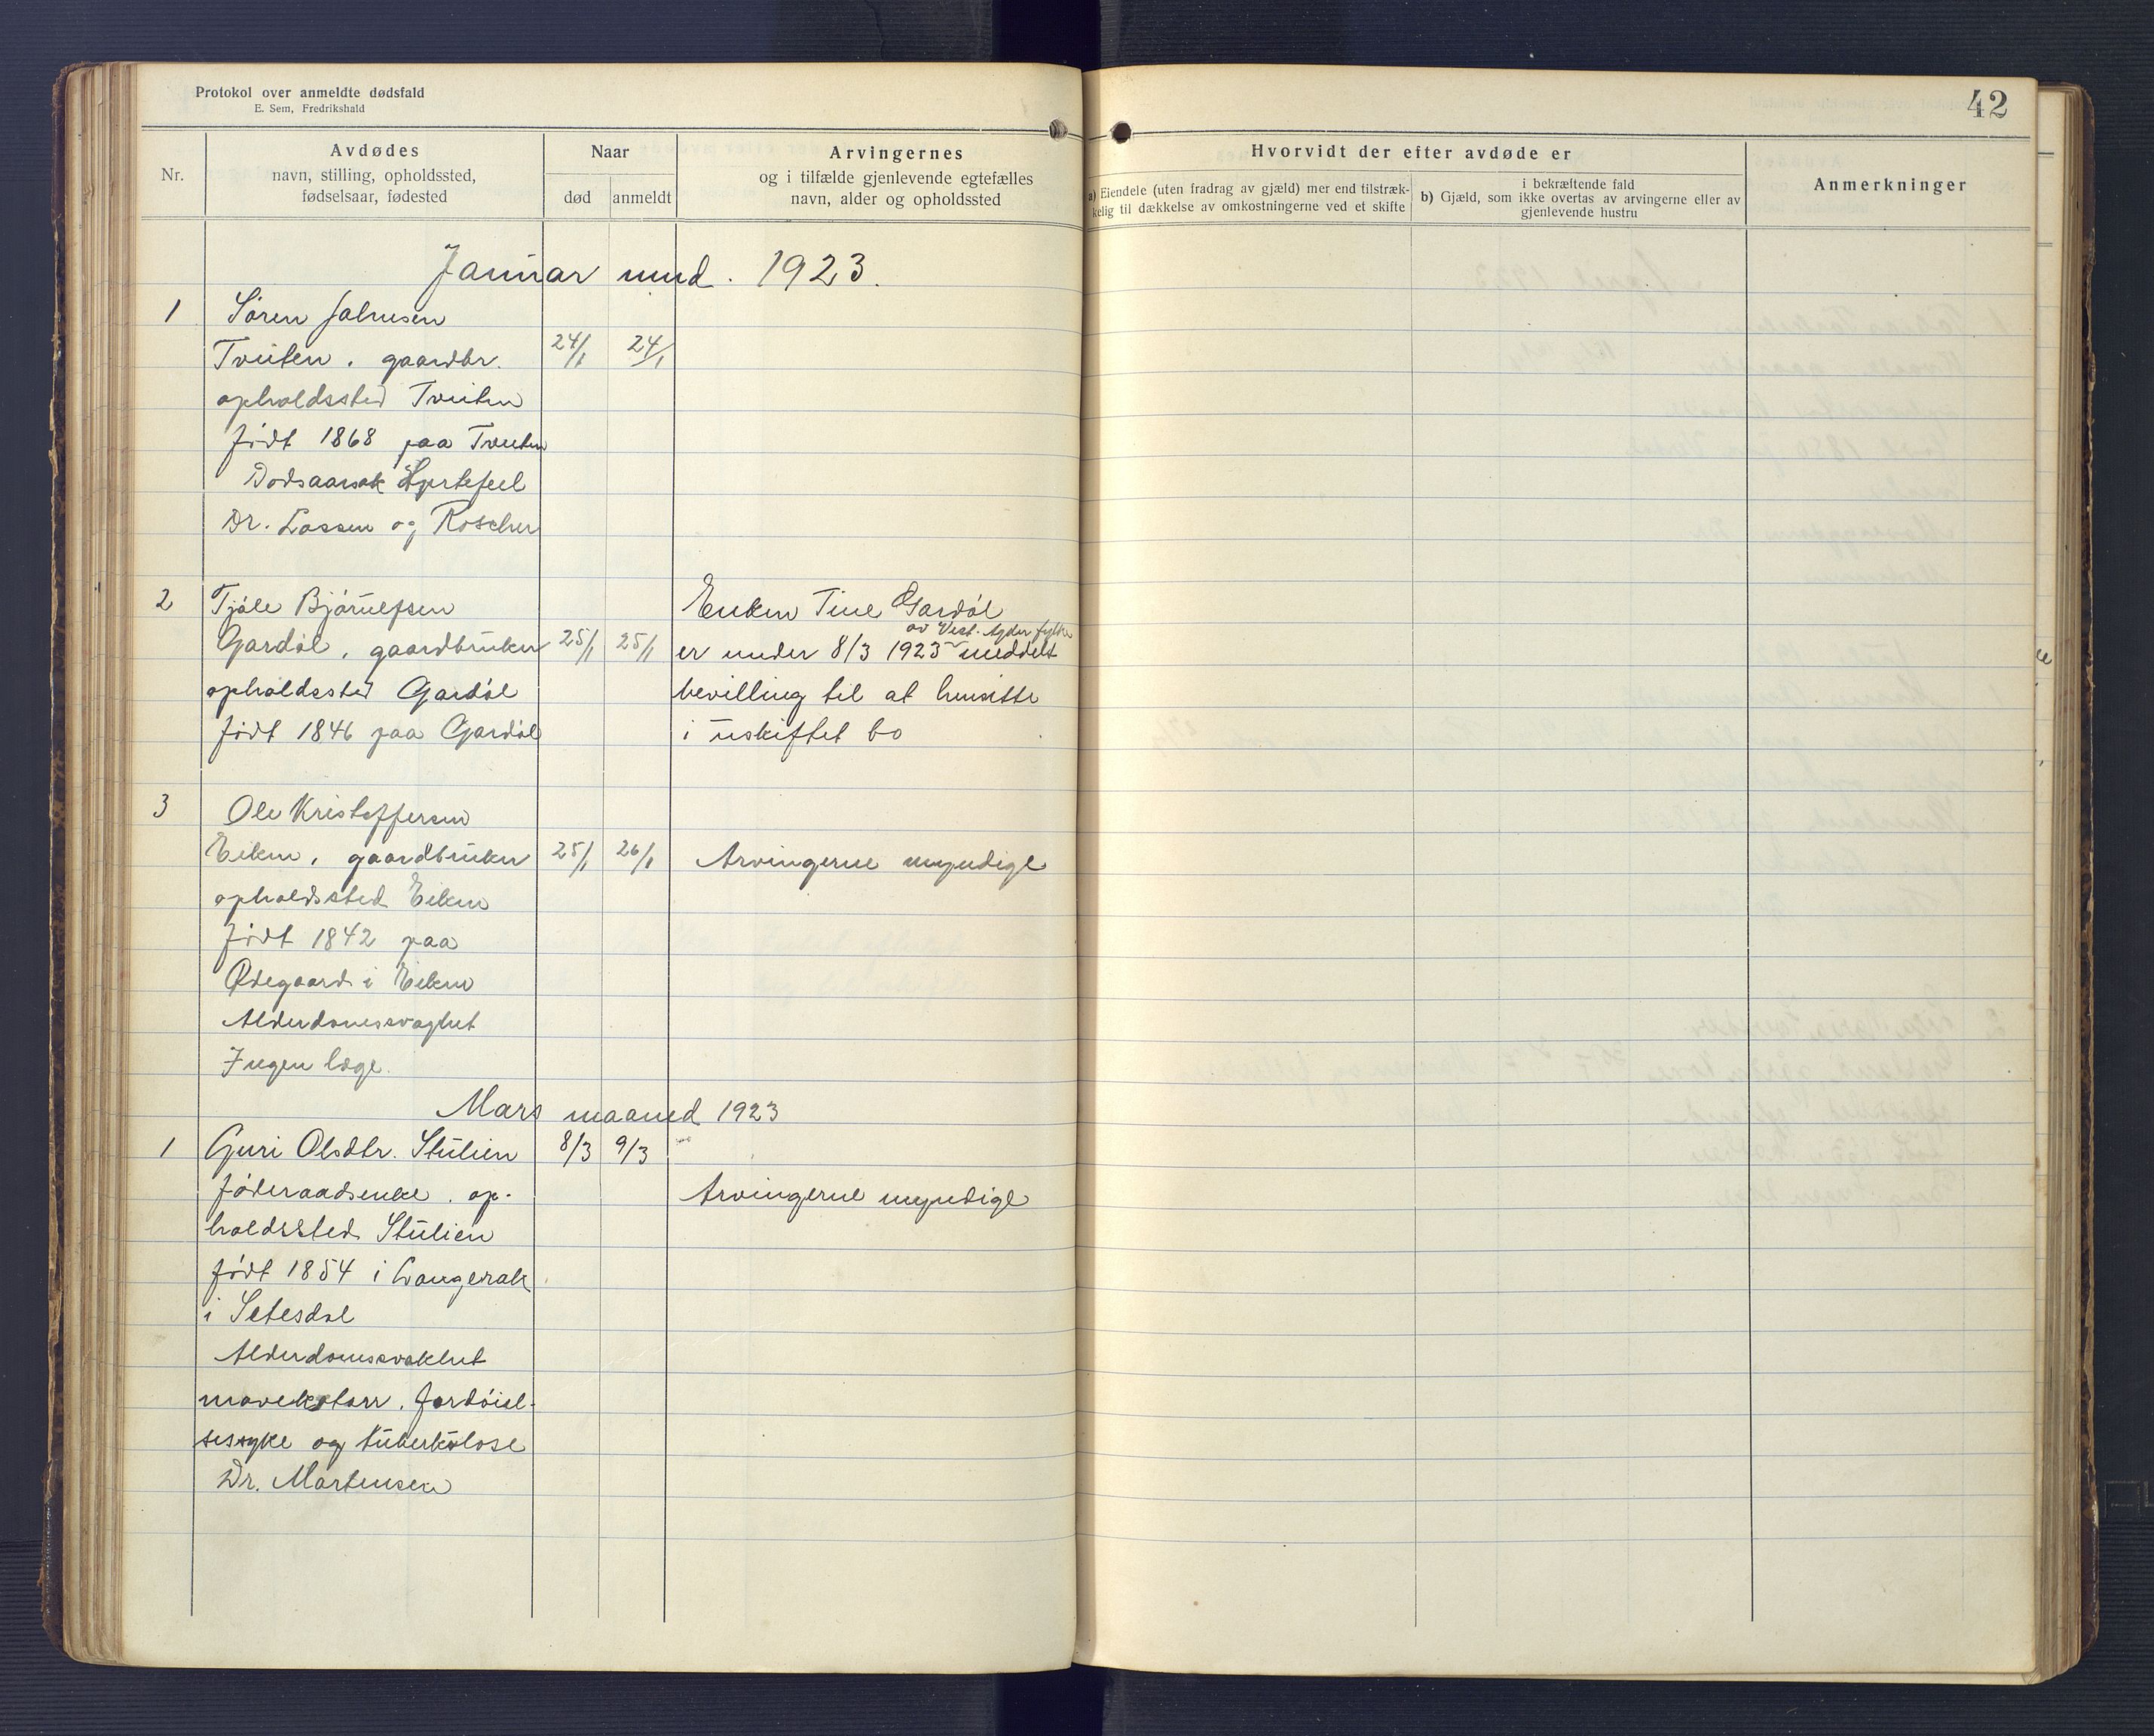 Protokol over anmeldte dødsfald
E. Sem, Fredrikshald
42
Nr.
Avdødes
navn, stilling, opholdssted,
fødselsaar, fødested
Naar
død
anmeldt
Arvingernes
og i tilfælde gjenlevende egtefælles
navn, alder og opholdssted
Hvorvidt der efter avdøde er
a) Eiendele (uten fradrag av gjæld) mer end tilstræk-
kelig til dækkelse av omkostningerne ved et skifte
i bekræftende fald
b) Gjæld, som ikke overtas av arvingerne eller av
gjenlevende hustru
Anmerkninger
Januar mnd. 1923.
1 Søren Salvesen
Tveiten, gaardbr. 24/1 24/1
opholdssted Tveiten
født 1868 paa Tveiten
Dødsaarsak Hjertefeil
Dr. Lassen og Roscher
2 Tjøle Bjørulfsen Enken Tine Gardøl
av Vest-Agder fylke
Gardøl, gaardbruker 25/1 25/1 er under 8/3 1923 meddelt
opholdssted Gardøl bevilling til at hensitte
født 1846 paa Gardøl i uskiftet bo
3 Ole Kristoffersen
Eiken, gaardbruker 25/1 26/1 Arvingerne myndige
opholdssted Eiken
født 1842 paa
Ødegaard i Eiken
Alderdomssvaghet
Ingen læge.
Mars maaned 1923
1 Guri Olsdtr. Stulien 8/3 9/3
føderaadsenke. op- Arvingerne myndige
holdssted Stulien
født 1854 i Langerak
i Setesdal
Alderdomssvakhet
mavekatarr. Fordøiel-
sessyke og tuberkulose
Dr. Martensen